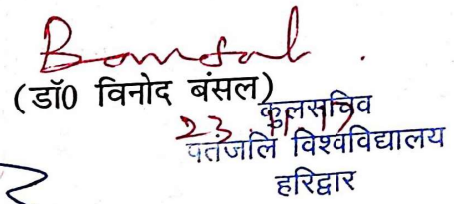 Bansal
(डॉ0 विनोद बंसल)
कुलसचिव
पतंजलि विश्वविद्यालय
हरिद्वार